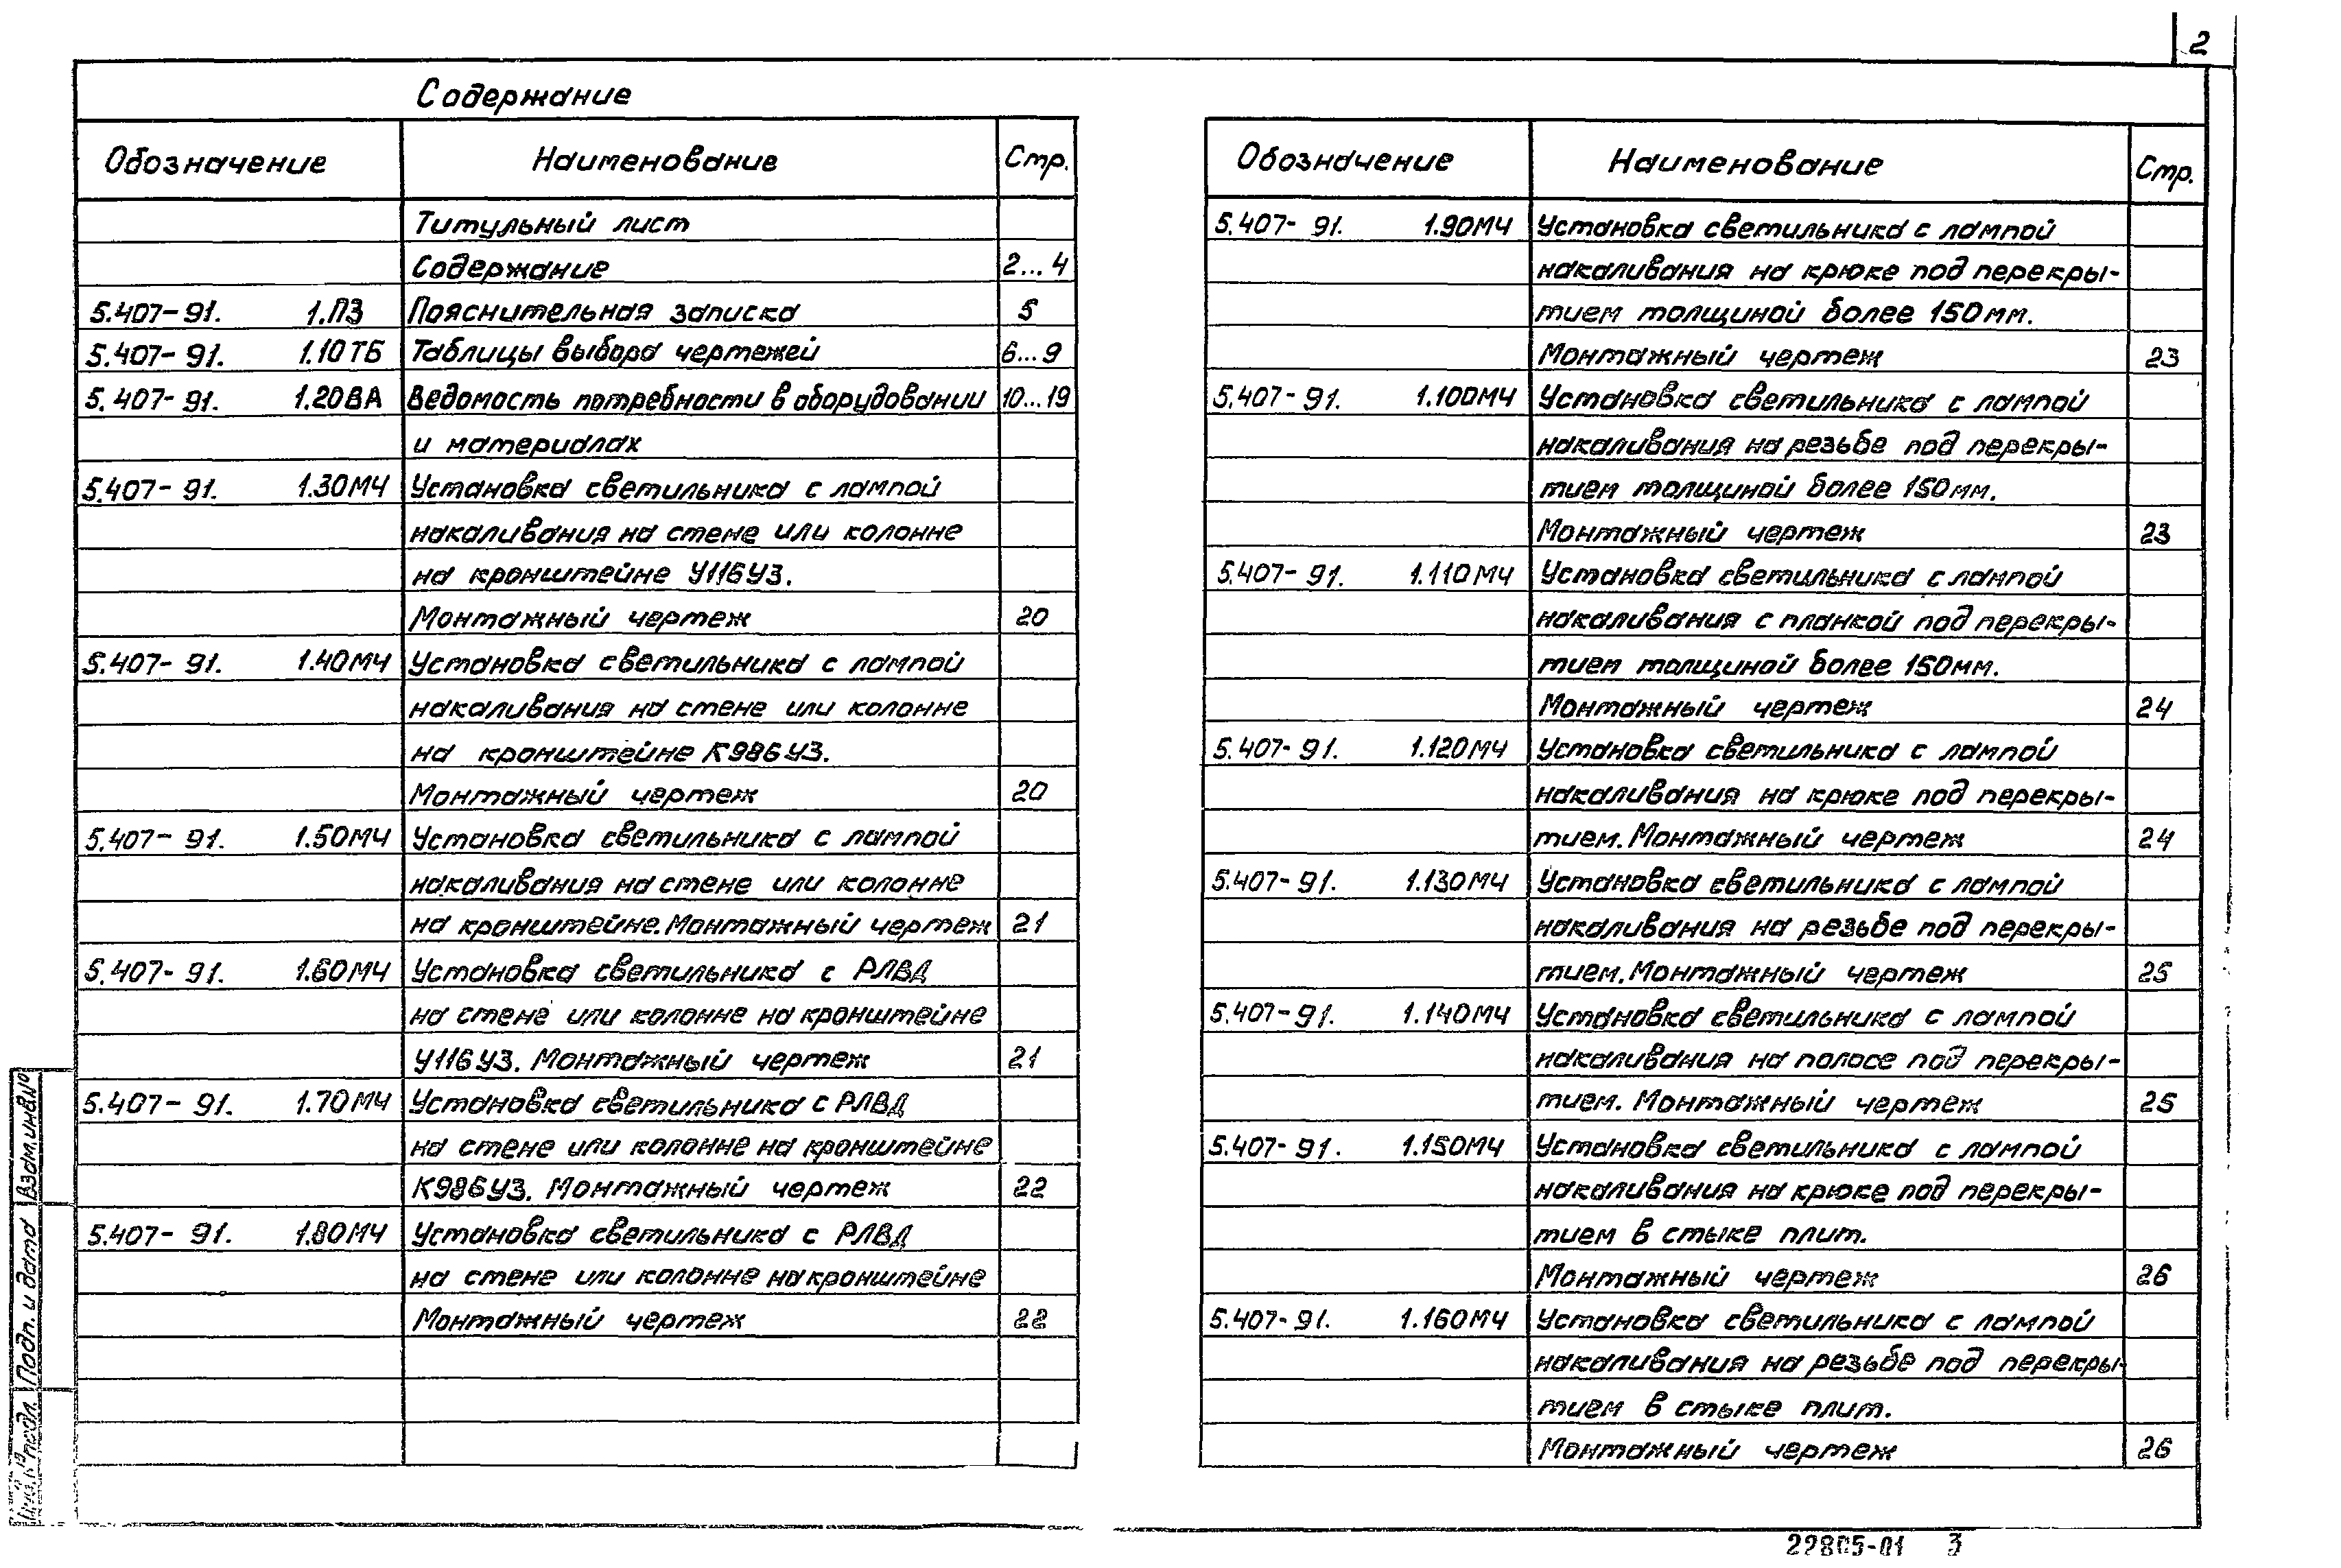 2
Содержание
Обозначение Наименование Стр.
Титульный лист
Содержание 2...4
5.407-91. 1.ПЗ Пояснительная записка 5
5.407-91. 1.10ТБ Таблицы выбора чертежей 6...9
5.407-91. 1.20ВА Ведомость потребности в оборудовании 10...19
и материалах
5.407-91. 1.30МЧ Установка светильника с лампой
накаливания на стене или колонне
на кронштейне У116У3.
Монтажный чертеж 20
5.407-91. 1.40МЧ Установка светильника с лампой
накаливания на стене или колонне
на кронштейне К986У3.
Монтажный чертеж 20
5.407-91. 1.50МЧ Установка светильника с лампой
накаливания на стене или колонне
на кронштейне. Монтажный чертеж 21
5.407-91. 1.60МЧ Установка светильника с РЛВД
на стене или колонне на кронштейне
У116У3. Монтажный чертеж 21
5.407-91. 1.70МЧ Установка светильника с РЛВД
на стене или колонне на кронштейне
К986У3. Монтажный чертеж 22
5.407-91. 1.80МЧ Установка светильника с РЛВД
на стене или колонне на кронштейне
Монтажный чертеж 22
Обозначение Наименование Стр.
5.407-91. 1.90МЧ Установка светильника с лампой
накаливания на крюке под перекры-
тием толщиной более 150мм.
Монтажный чертеж 23
5.407-91. 1.100МЧ Установка светильника с лампой
накаливания на резьбе под перекры-
тием толщиной более 150мм.
Монтажный чертеж 23
5.407-91. 1.110МЧ Установка светильника с лампой
накаливания с планкой под перекры-
тием толщиной более 150мм.
Монтажный чертеж 24
5.407-91. 1.120МЧ Установка светильника с лампой
накаливания на крюке под перекры-
тием. Монтажный чертеж 24
5.407-91. 1.130МЧ Установка светильника с лампой
накаливания на резьбе под перекры-
тием. Монтажный чертеж 25
5.407-91. 1.140МЧ Установка светильника с лампой
накаливания на полосе под перекры-
тием. Монтажный чертеж 25
5.407-91. 1.150МЧ Установка светильника с лампой
накаливания на крюке под перекры-
тием в стыке плит.
Монтажный чертеж 26
5.407-91. 1.160МЧ Установка светильника с лампой
накаливания на резьбе под перекры-
тием в стыке плит.
Монтажный чертеж 26
Взам.инв№
Подп. и дата
Инв.№подл.
22805-01 3